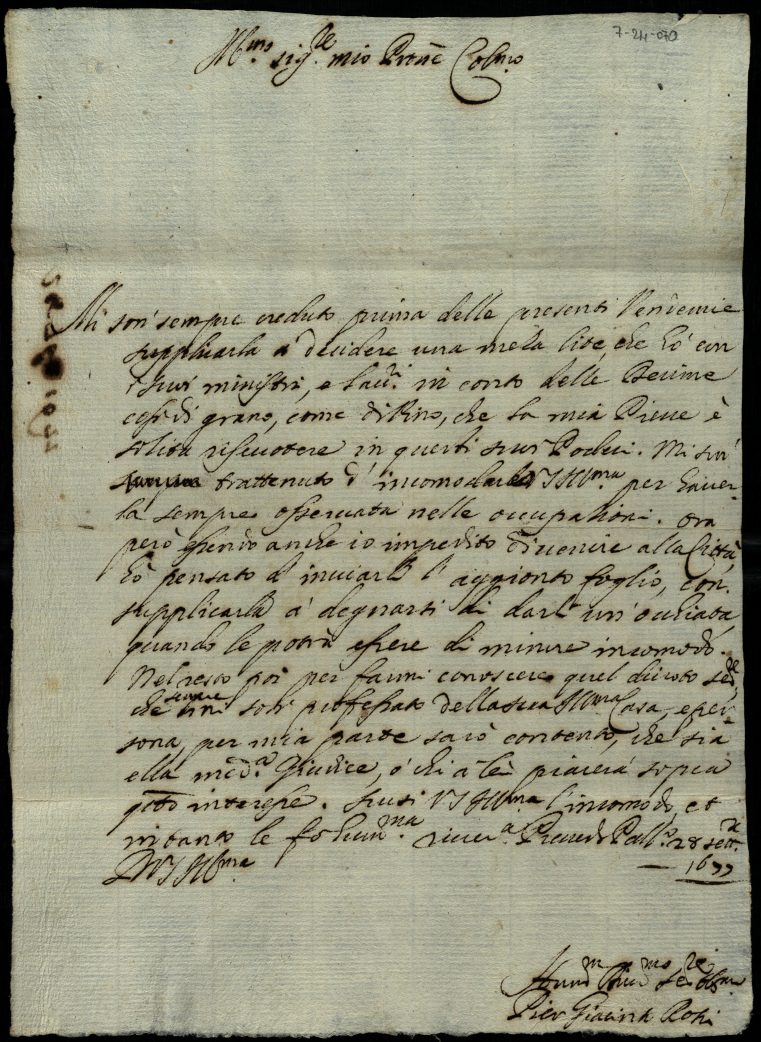 7-24-070
Ill.mo sig.re mio Prone Colmo
Mi son' sempre creduto prima delle presenti Vendemie
supplicarla a' decidere una meza lite, che hò con
i suoi ministri, e lau.ri in conto delle Decime
così di grano, come di Vino, che la mia Pieve è
solita riscuotere in questi suoi Poderi. Mi son'
trattenuto d' incomodarla VS Ill.ma per haver
la sempre osservata nelle occupationi. Ora
però essendo anche io impedito di venire alla Città,
hò pensato d' inviarle l' aggionto foglio, con
supplicarla a' degnarsi di darli un' occhiata,
quando le potrà essere di minore incomodo.
Nel resto poi per farmi conoscere quel divoto se.re
che sempre mi son' professato della sua Ill.ma Casa, e per-
sona, per mia parte sarò contento, che sia
ella med.a Giudice, ò chi a lei piacerà sopra
q.to interesse. Scusi VS Ill.ma l'incomodo, et
intanto le fo hum.ma river.a 28 sett.re
D VS Ill.ma 1677
Pier Giacinto